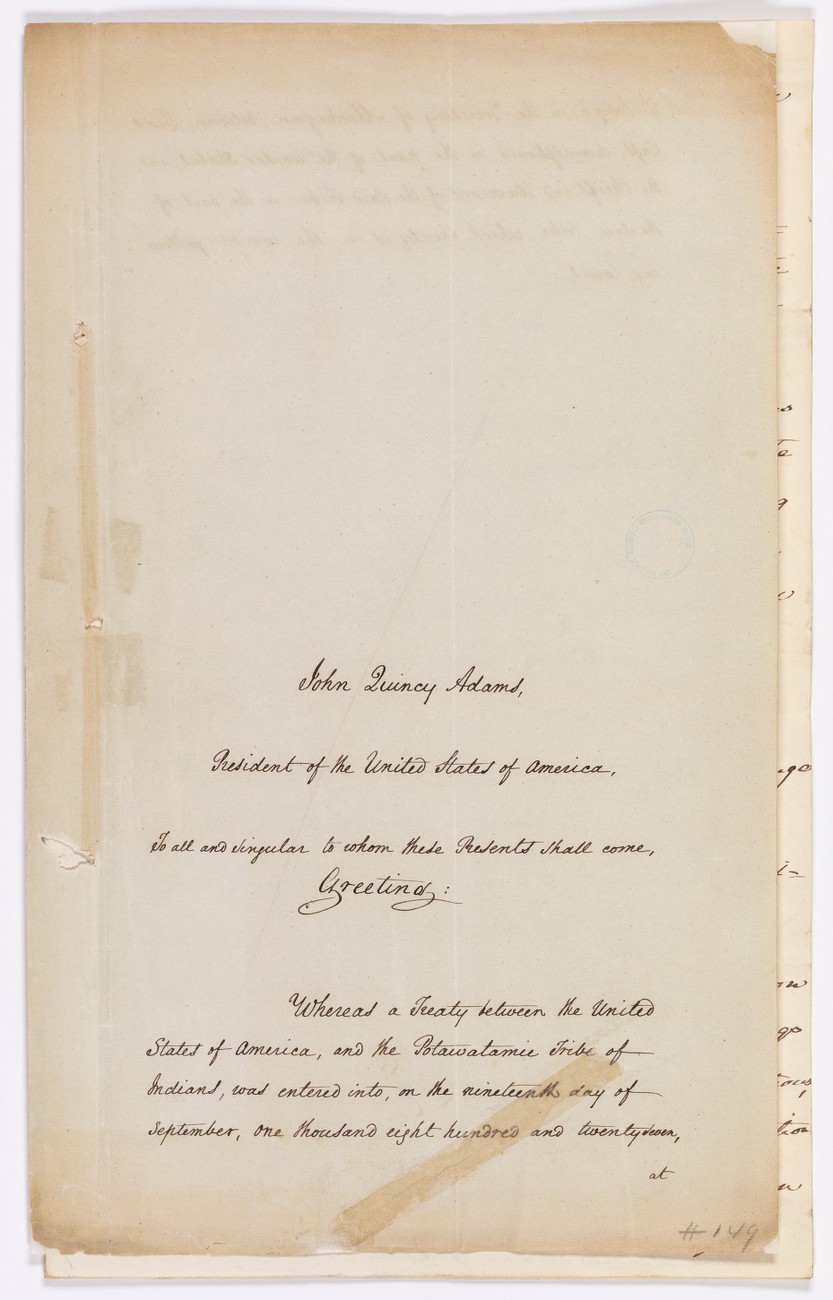 John Quincy Adams,
President of the United States of America,
To all and singular to whom these Presents shall come,
Greeting:
Whereas a Treaty between the United
States of America, and the Potawatamie Tribe of
Indians, was entered into, on the nineteenth day of
September, one thousand eight hundred and twenty seven,
at
# 149